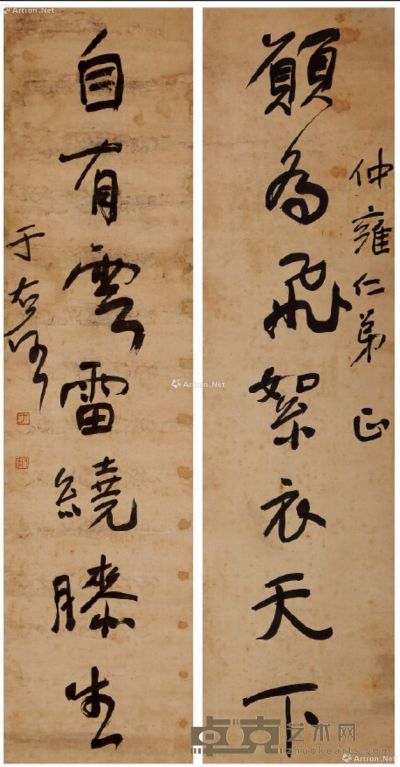 仲雍仁弟 正
願為飛絮衣天下
自有雲雷繞膝生
于右任
Artron.Net
卓克艺术网